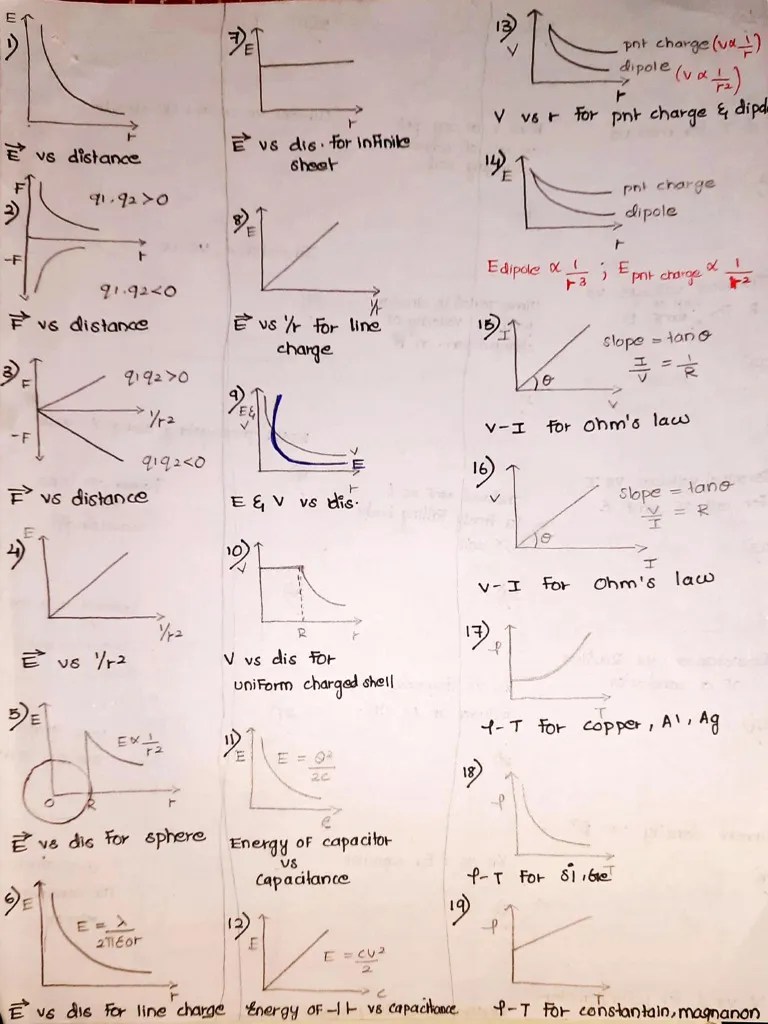 1)
E
r
E vs distance
2)
F
q1.q2>0
r
-F
q1.q2<0
F vs distance
3)
F
q1q2>0
1/r2
-F
q1q2<0
F vs distance
4)
E
1/r2
E vs 1/r2
5)
E
E∝1/r2
O
R
r
E vs dis for sphere
6)
E
E = λ/2πε0r
r
E vs dis for line charge
7)
E
r
E vs dis. for infinite
sheet
8)
E
1/r
E vs 1/r for line
charge
9)
E &
V
V
E
r
E & V vs dis.
10)
V
R
r
V vs dis for
uniform charged shell
11)
E
E = Q²/2C
C
Energy of capacitor
vs
Capacitance
12)
E
E = CV²/2
C
Energy of -||- vs capacitance
13)
V
pnt charge (V∝1/r)
dipole (V∝1/r2)
r
V vs r for pnt charge & dipo
14)
E
pnt charge
dipole
r
Edipole ∝ 1/r3 ; Epnt charge ∝ 1/r2
15)
I
slope = tanθ
I/V = 1/R
θ
V
V-I for Ohm's law
16)
V
slope = tanθ
V/I = R
θ
I
V-I for Ohm's law
17)
ρ
T
ρ-T for copper, Al, Ag
18)
ρ
T
ρ-T for Si, Ge
19)
ρ
T
ρ-T for constantain, magnanon